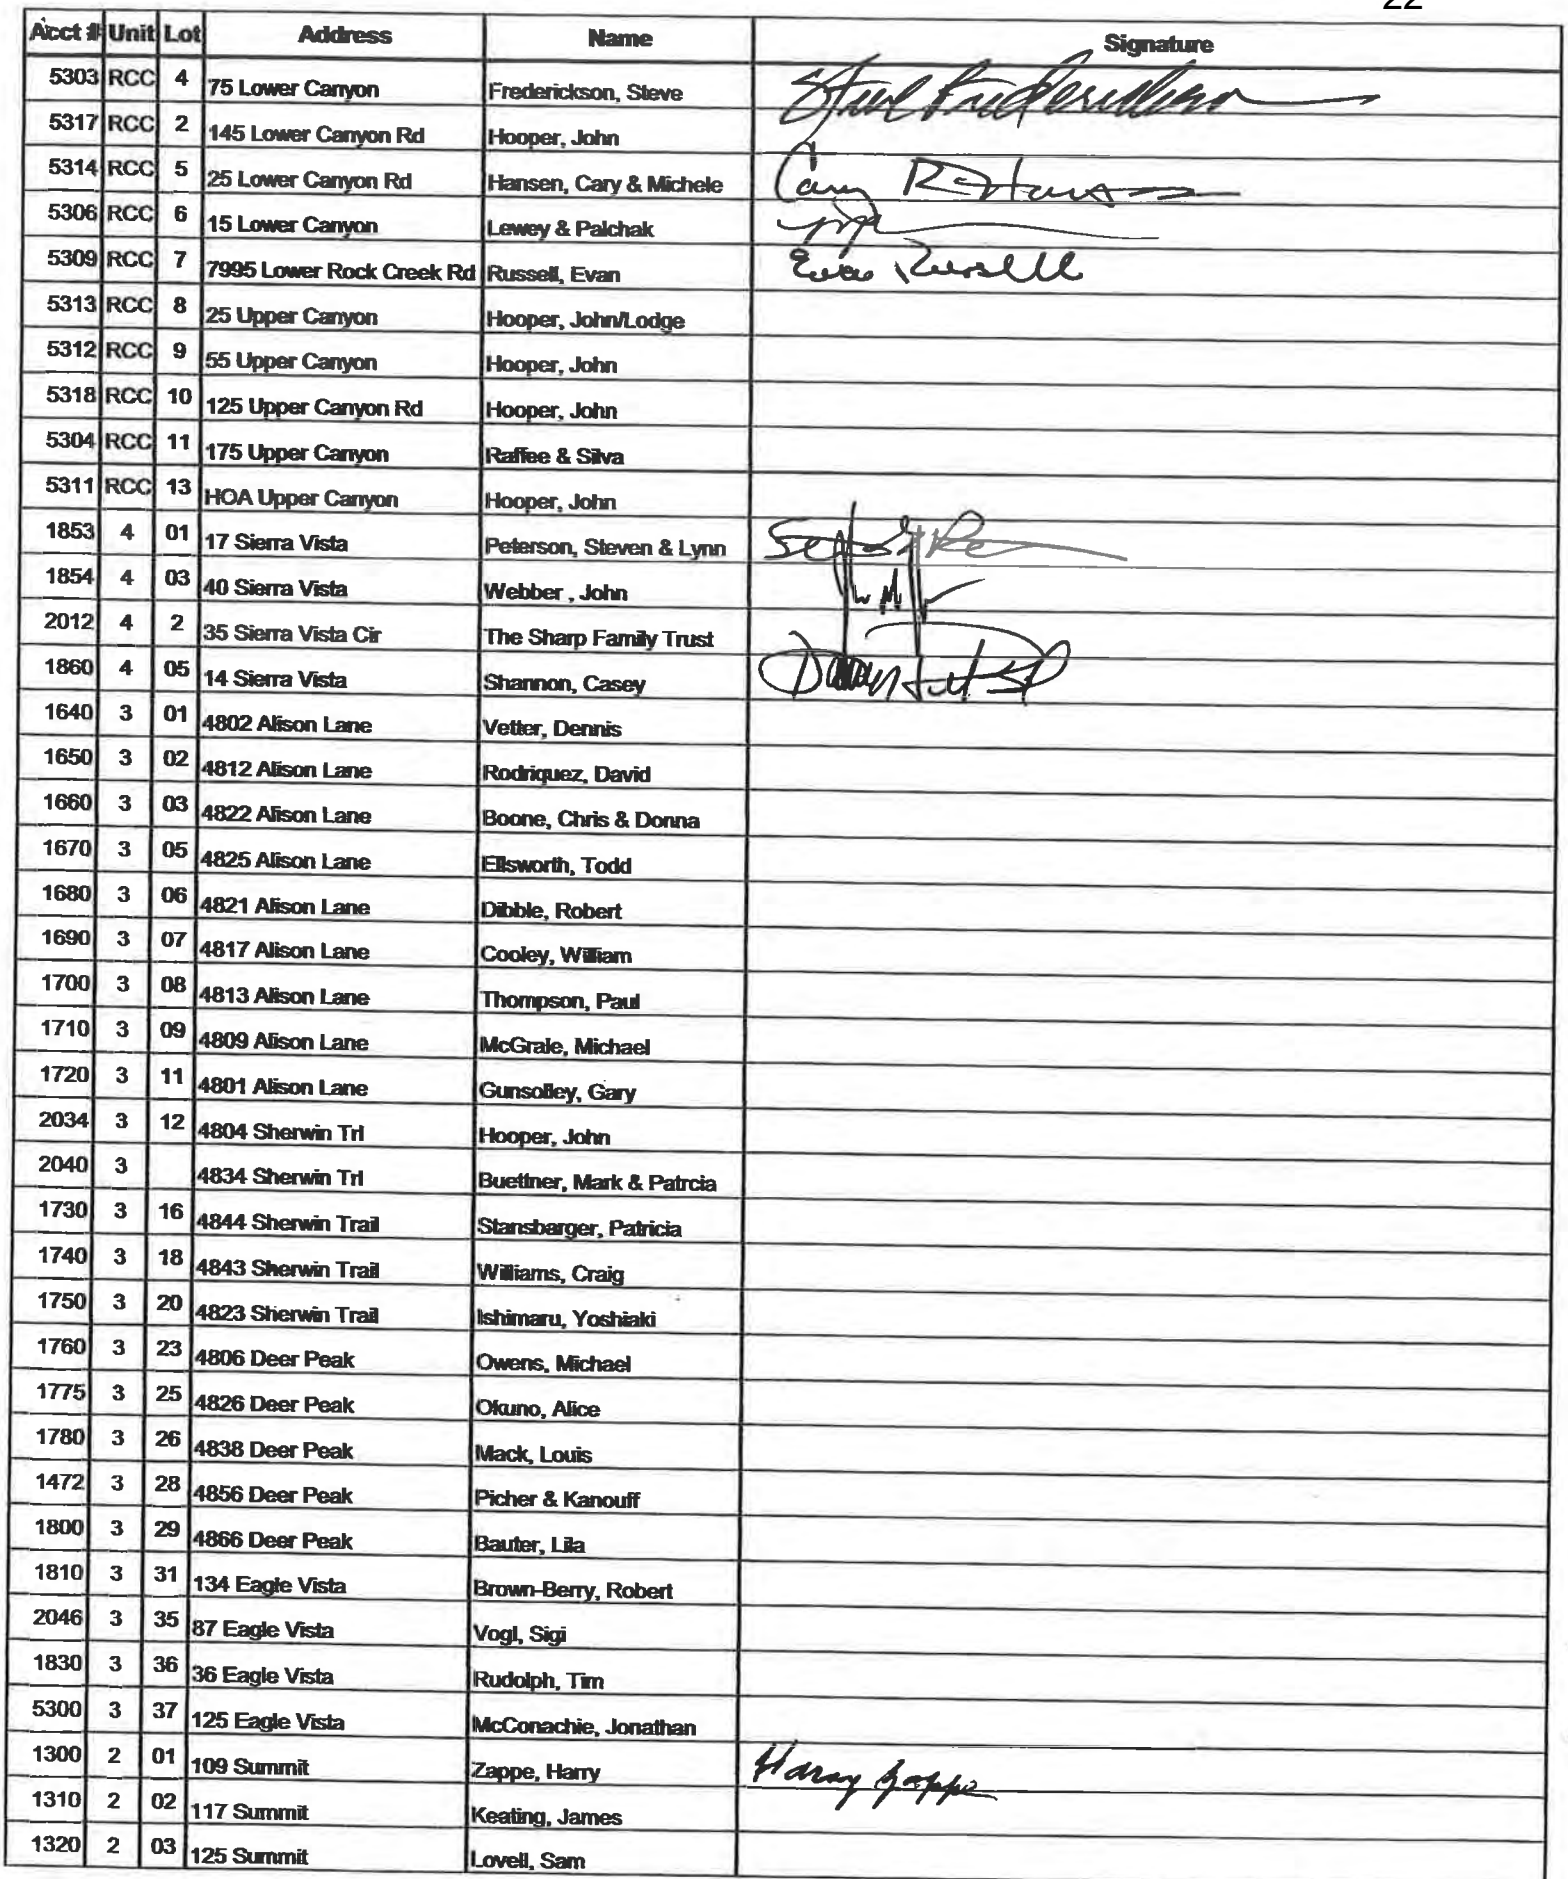 22
Acct # Unit Lot Address Name Signature
5303 RCC 4 75 Lower Canyon Frederickson, Steve
5317 RCC 2 145 Lower Canyon Rd Hooper, John
5314 RCC 5 25 Lower Canyon Rd Hansen, Cary & Michele Cary R Hansen
5306 RCC 6 15 Lower Canyon Lewey & Palchak
5309 RCC 7 7995 Lower Rock Creek Rd Russell, Evan Evan Russell
5313 RCC 8 25 Upper Canyon Hooper, John/Lodge
5312 RCC 9 55 Upper Canyon Hooper, John
5318 RCC 10 125 Upper Canyon Rd Hooper, John
5304 RCC 11 175 Upper Canyon Raffee & Silva
5311 RCC 13 HOA Upper Canyon Hooper, John
1853 4 01 17 Sierra Vista Peterson, Steven & Lynn
1854 4 03 40 Sierra Vista Webber , John
2012 4 2 35 Sierra Vista Cir The Sharp Family Trust
1860 4 05 14 Sierra Vista Shannon, Casey
1640 3 01 4802 Alison Lane Vetter, Dennis
1650 3 02 4812 Alison Lane Rodriquez, David
1660 3 03 4822 Alison Lane Boone, Chris & Donna
1670 3 05 4825 Alison Lane Ellsworth, Todd
1680 3 06 4821 Alison Lane Dibble, Robert
1690 3 07 4817 Alison Lane Cooley, William
1700 3 08 4813 Alison Lane Thompson, Paul
1710 3 09 4809 Alison Lane McGrale, Michael
1720 3 11 4801 Alison Lane Gunsolley, Gary
2034 3 12 4804 Sherwin Trl Hooper, John
2040 3 4834 Sherwin Trl Buettner, Mark & Patrcia
1730 3 16 4844 Sherwin Trail Stansbarger, Patricia
1740 3 18 4843 Sherwin Trail Williams, Craig
1750 3 20 4823 Sherwin Trail Ishimaru, Yoshiaki
1760 3 23 4806 Deer Peak Owens, Michael
1775 3 25 4826 Deer Peak Okuno, Alice
1780 3 26 4838 Deer Peak Mack, Louis
1472 3 28 4856 Deer Peak Picher & Kanouff
1800 3 29 4866 Deer Peak Bauter, Lila
1810 3 31 134 Eagle Vista Brown-Berry, Robert
2046 3 35 87 Eagle Vista Vogl, Sigi
1830 3 36 36 Eagle Vista Rudolph, Tim
5300 3 37 125 Eagle Vista McConachie, Jonathan
1300 2 01 109 Summit Zappe, Harry Harry Zappe
1310 2 02 117 Summit Keating, James
1320 2 03 125 Summit Lovell, Sam